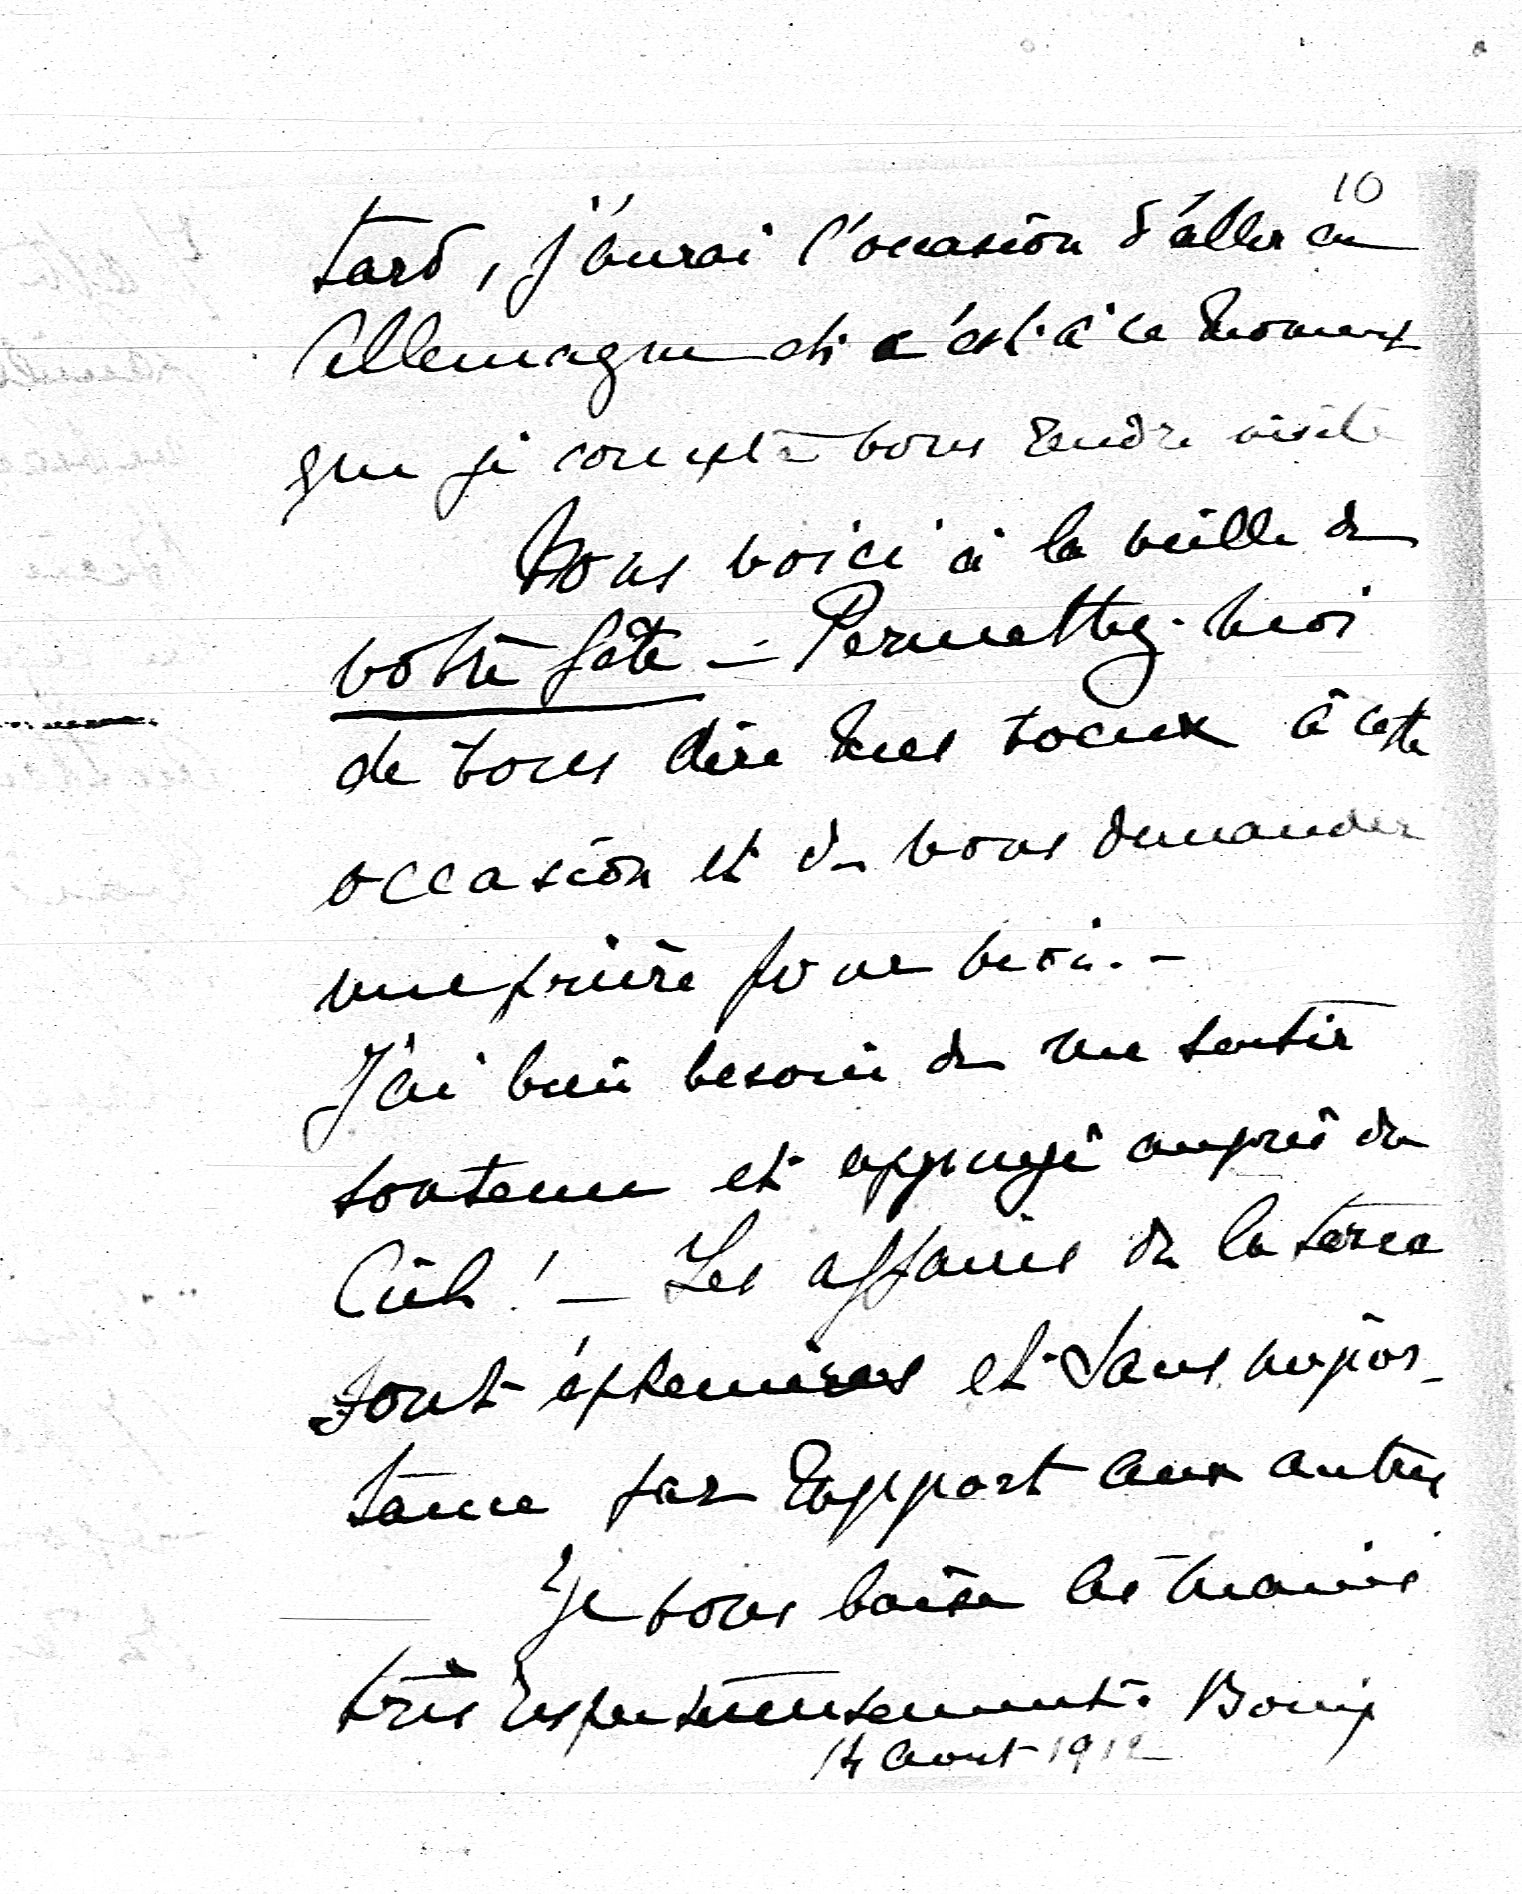 10
tard, j'aurai l'occasion d'aller en
Allemagne et c'est à ce moment
que je compte vous rendre visite
Nous voici à la veille de
votre fête - Permettez-moi
de vous dire mes voeux à cette
occasion et de vous demander
une prière pour moi. -
J'ai bien besoin de me sentir
soutenu et appuyé auprès du
Ciel ! - Les affaires de la terre
sont éphemères et sans impor-
tance par rapport aux autres
Je vous baise les mains
très respectueusement.
14 aout 1912